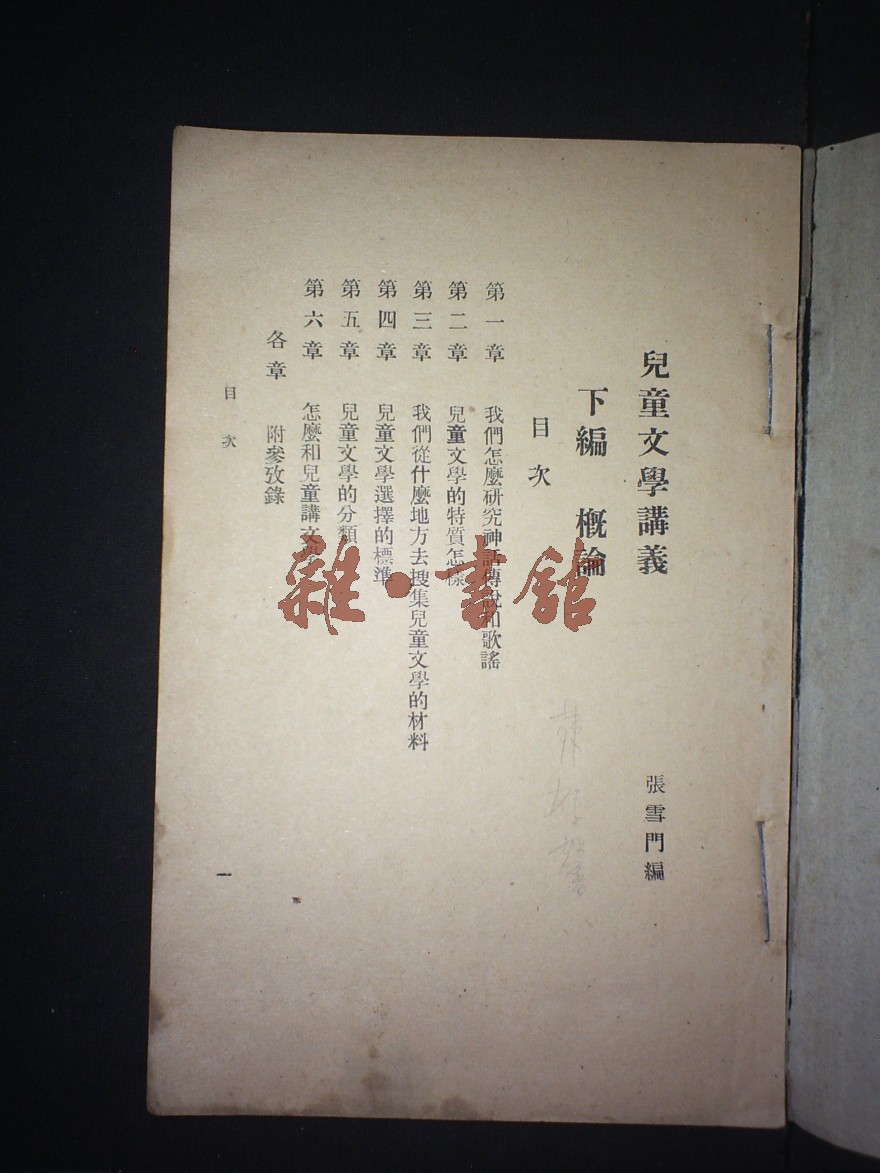 兒童文學講義
張雪門編
下編 概論
目次
第一章 我們怎麼研究神話傳說和歌謠
第二章 兒童文學的特質怎樣
第三章 我們從什麼地方去搜集兒童文學的材料
第四章 兒童文學選擇的標準
第五章 兒童文學的分類
第六章 怎麼和兒童講文學
各章 附參攷錄
目次
一
雜·書館